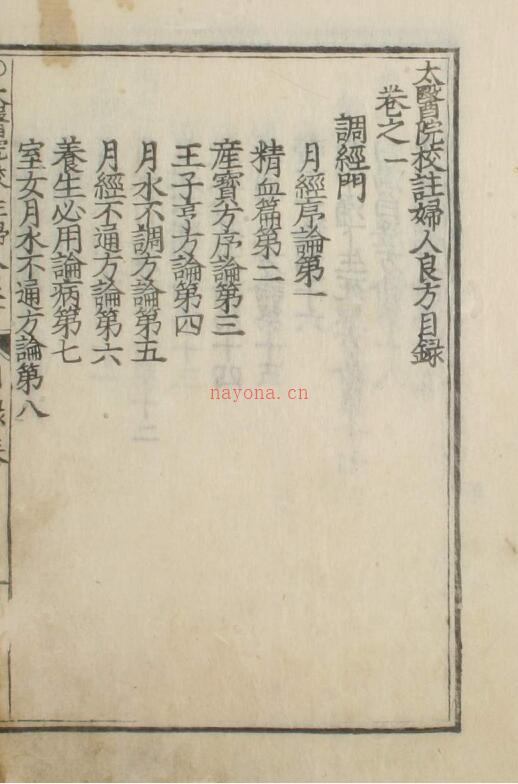 太醫院校註婦人良方目録
卷之一
調經門
月經序論第一
精血篇第二
産寳方序論第三
王子亨方論第四
月水不調方論第五
月經不通方論第六
養生必用論病第七
室女月水不通方論第八
nayona.cn